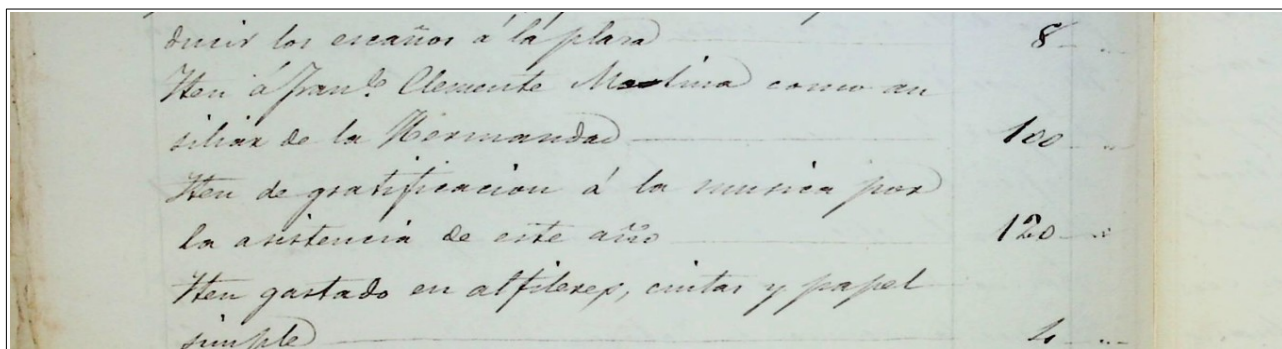 ducir los escaños á la plasa 8
Iten á Fran.co Clemente Molina como au
siliar de la Hermandad 100
Iten de gratificacion á la musica por
la asistencia de este año 120
Iten gastado en alfileres, cintas y papel
simple 4